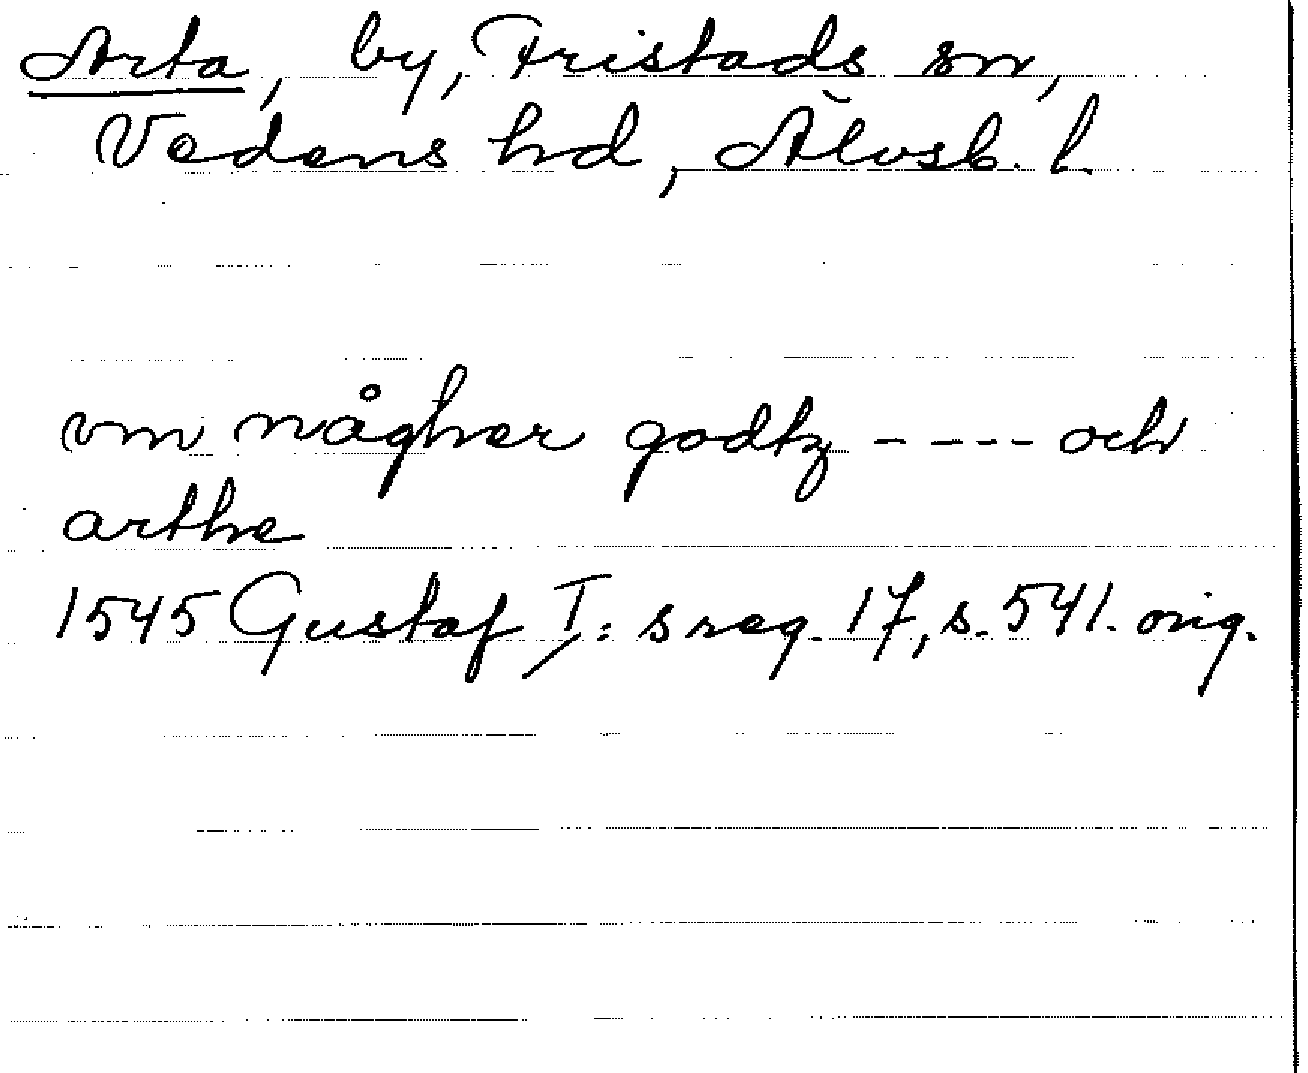 Arta, by, Fristads sn,
Vedens hd, Älvsb. l.
vm någher godtz - - - - och
arthe
1545 Gustaf I:s reg. 17, s. 541. orig.